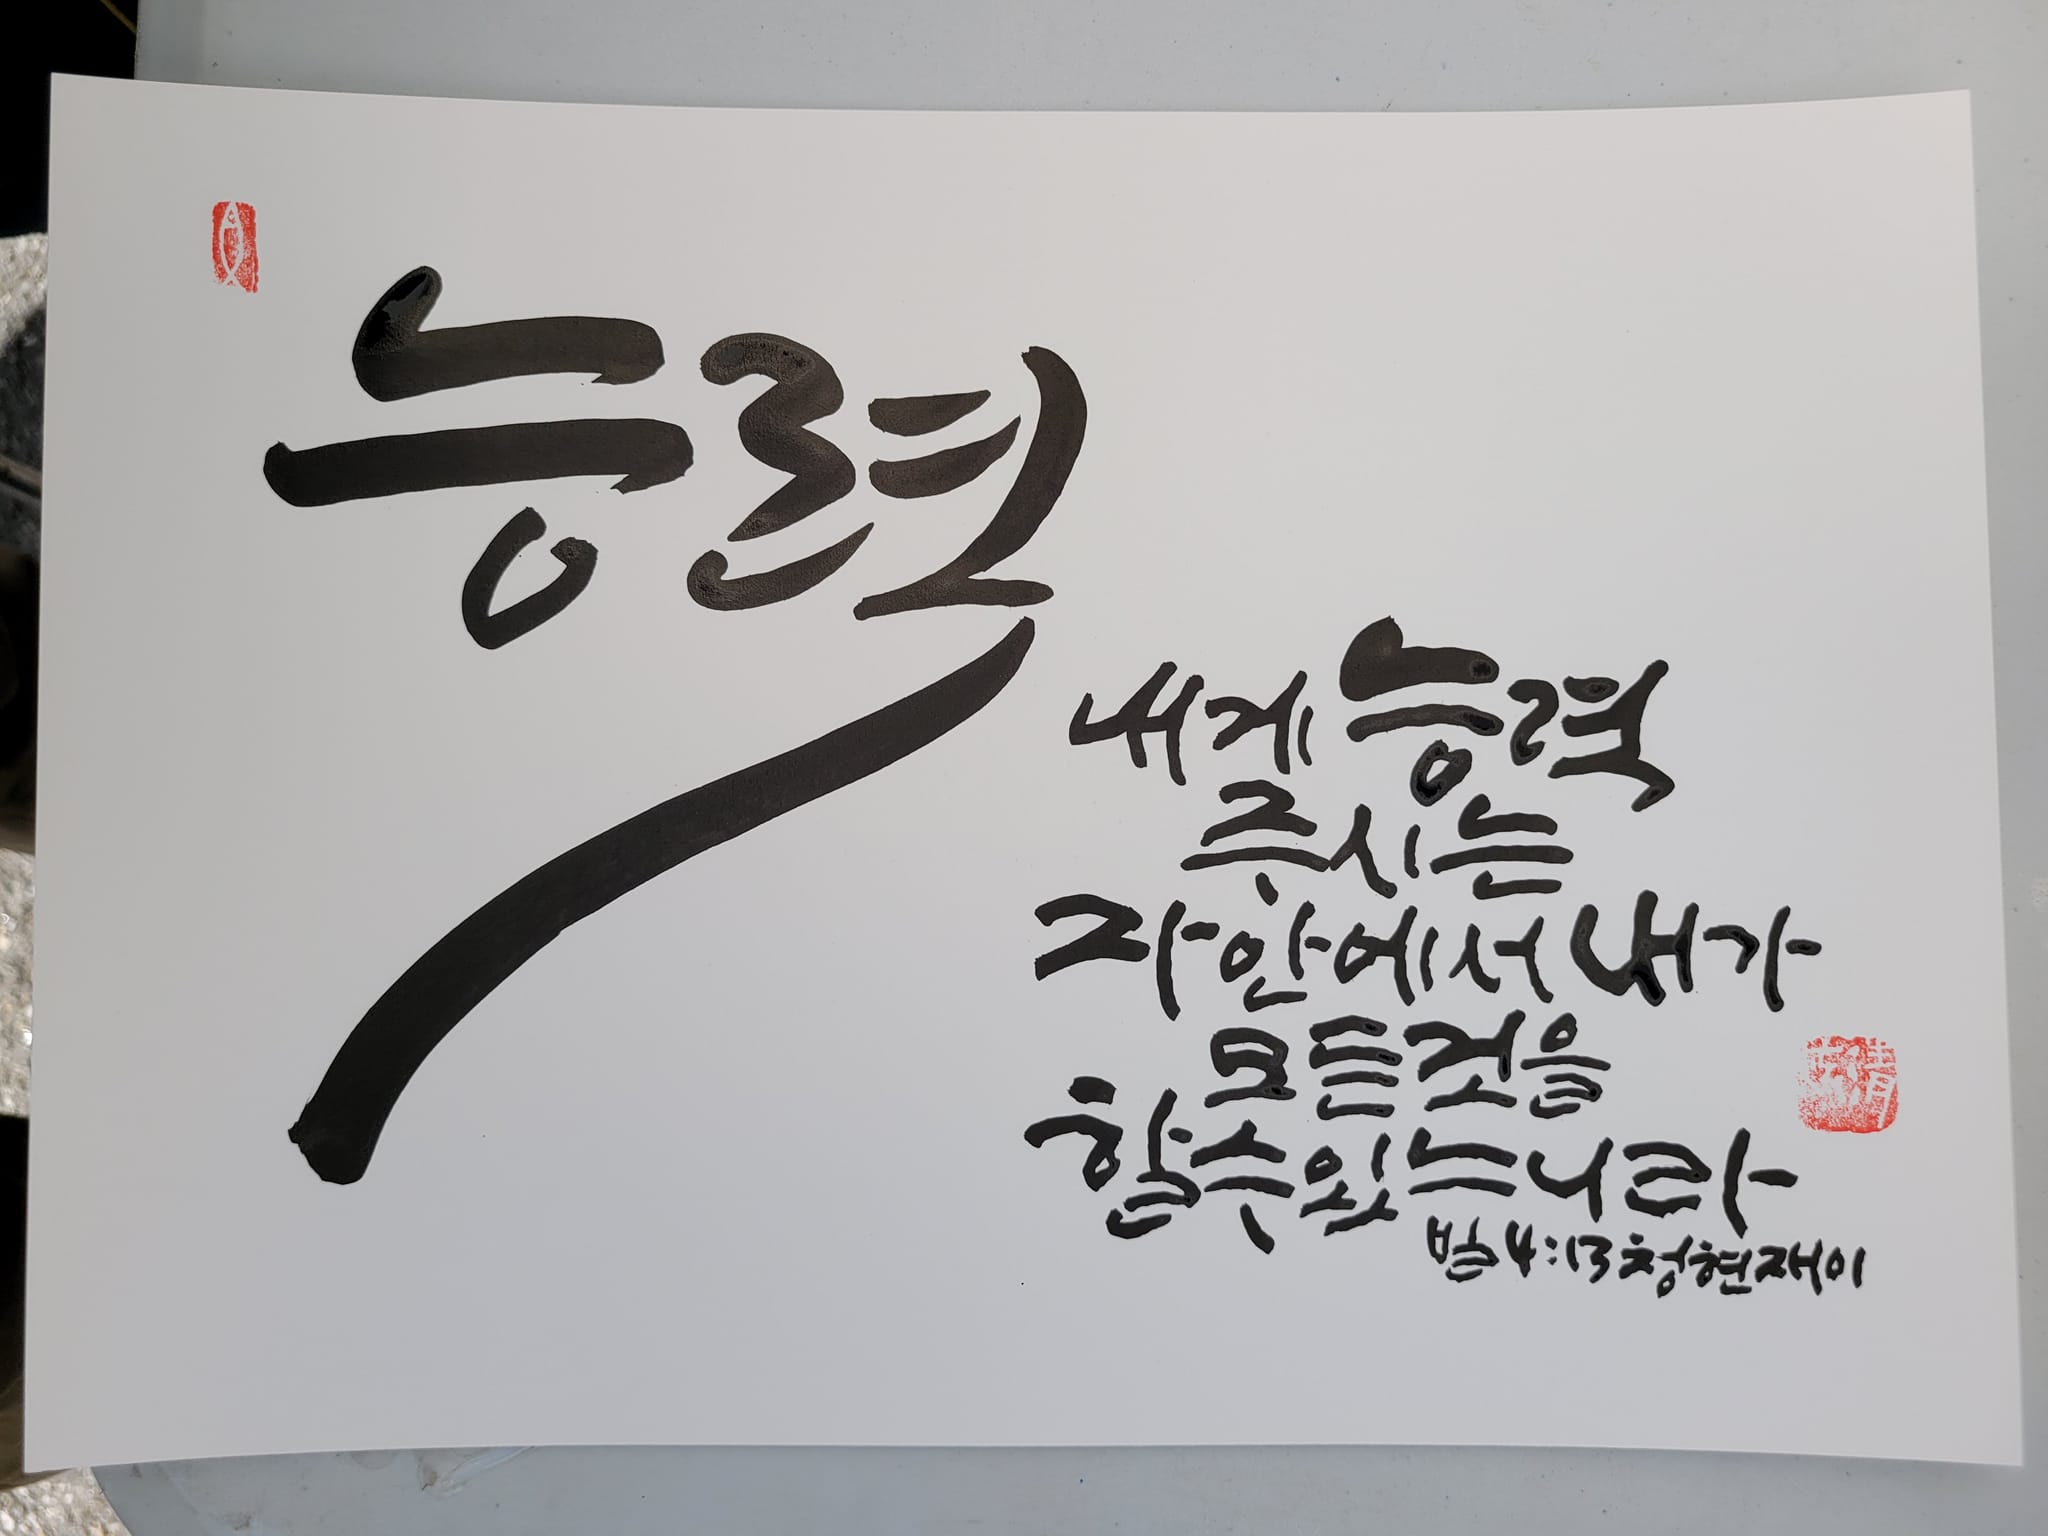 능력
내게 능력
주시는
자 안에서 내가
모든것을
할 수 있느니라
빌 4:13 청현재이